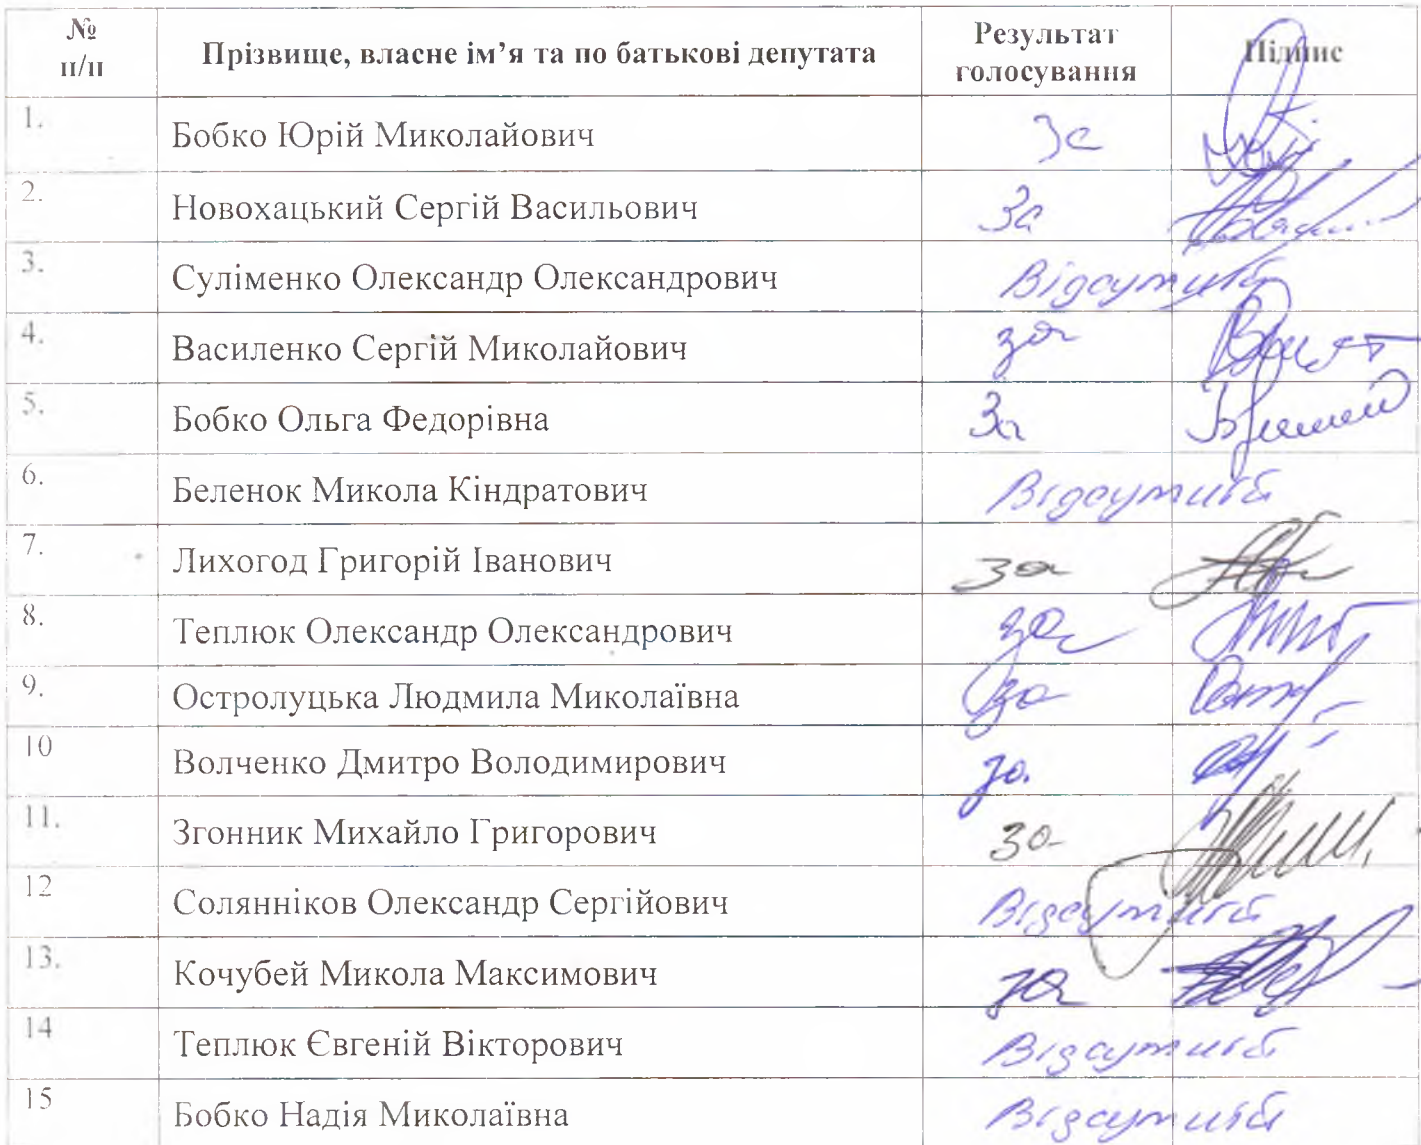 № п/п Прізвище, власне ім’я та по батькові депутата Результат голосування Підпис
1. Бобко Юрій Миколайович За
2. Новохацький Сергій Васильович За
3. Суліменко Олександр Олександрович Відсутній
4. Василенко Сергій Миколайович за
5. Бобко Ольга Федорівна За
6. Беленок Микола Кіндратович Відсутній
7. Лихогод Григорій Іванович за
8. Теплюк Олександр Олександрович за
9. Остролуцька Людмила Миколаївна за
10 Волченко Дмитро Володимирович за.
11. Згонник Михайло Григорович за
12 Солянніков Олександр Сергійович Відсутній
13. Кочубей Микола Максимович за
14 Теплюк Євгеній Вікторович Відсутній
15 Бобко Надія Миколаївна Відсутній